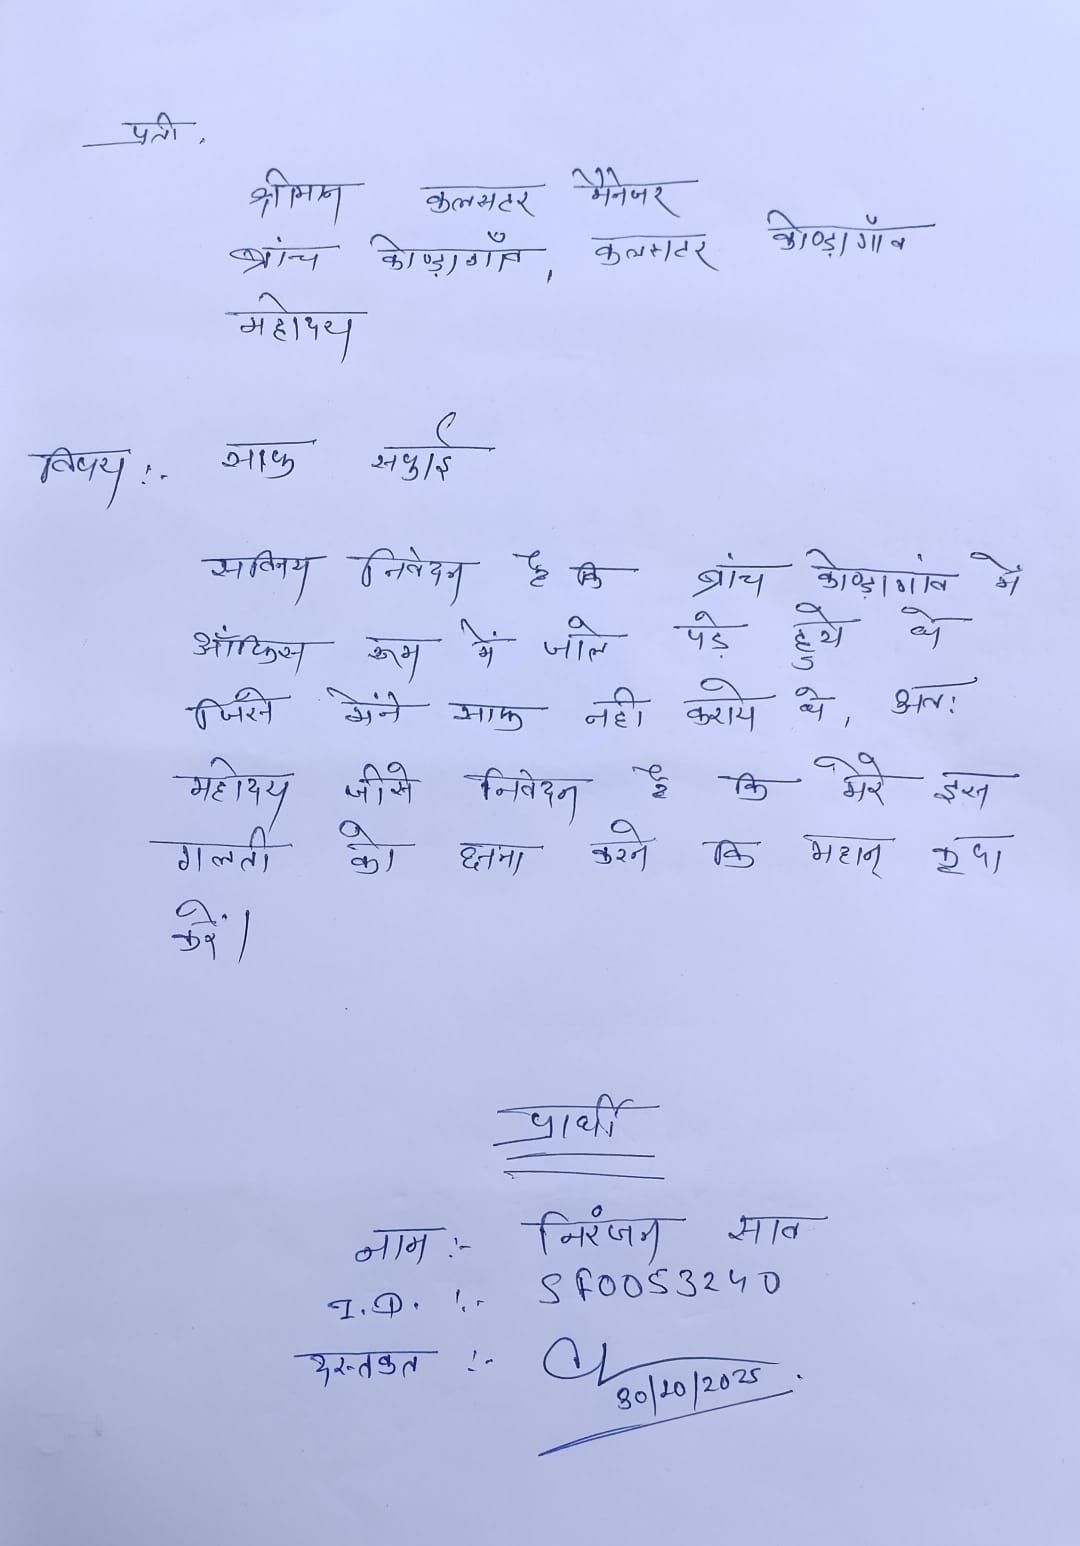 प्रती,
श्रीमान कलसटर मैनेजर
ब्रांच कोण्डागाँव, कलसटर कोण्डागाँव
महोदय
विषय :- साफ सफाई
सविनय निवेदन है कि ब्रांच कोण्डागांव में
ऑफिस रूम में जाले पड़े हुये थे
जिसे मैंने साफ नही कराये थे, अतः
महोदय जीसे निवेदन है कि मेरे इस
गलती को क्षमा करने कि महान् कृपा
करें।
प्रार्थी
नाम :- निरंजन साव
I.D. :- SF0053240
दस्तकत :-
30/10/2025